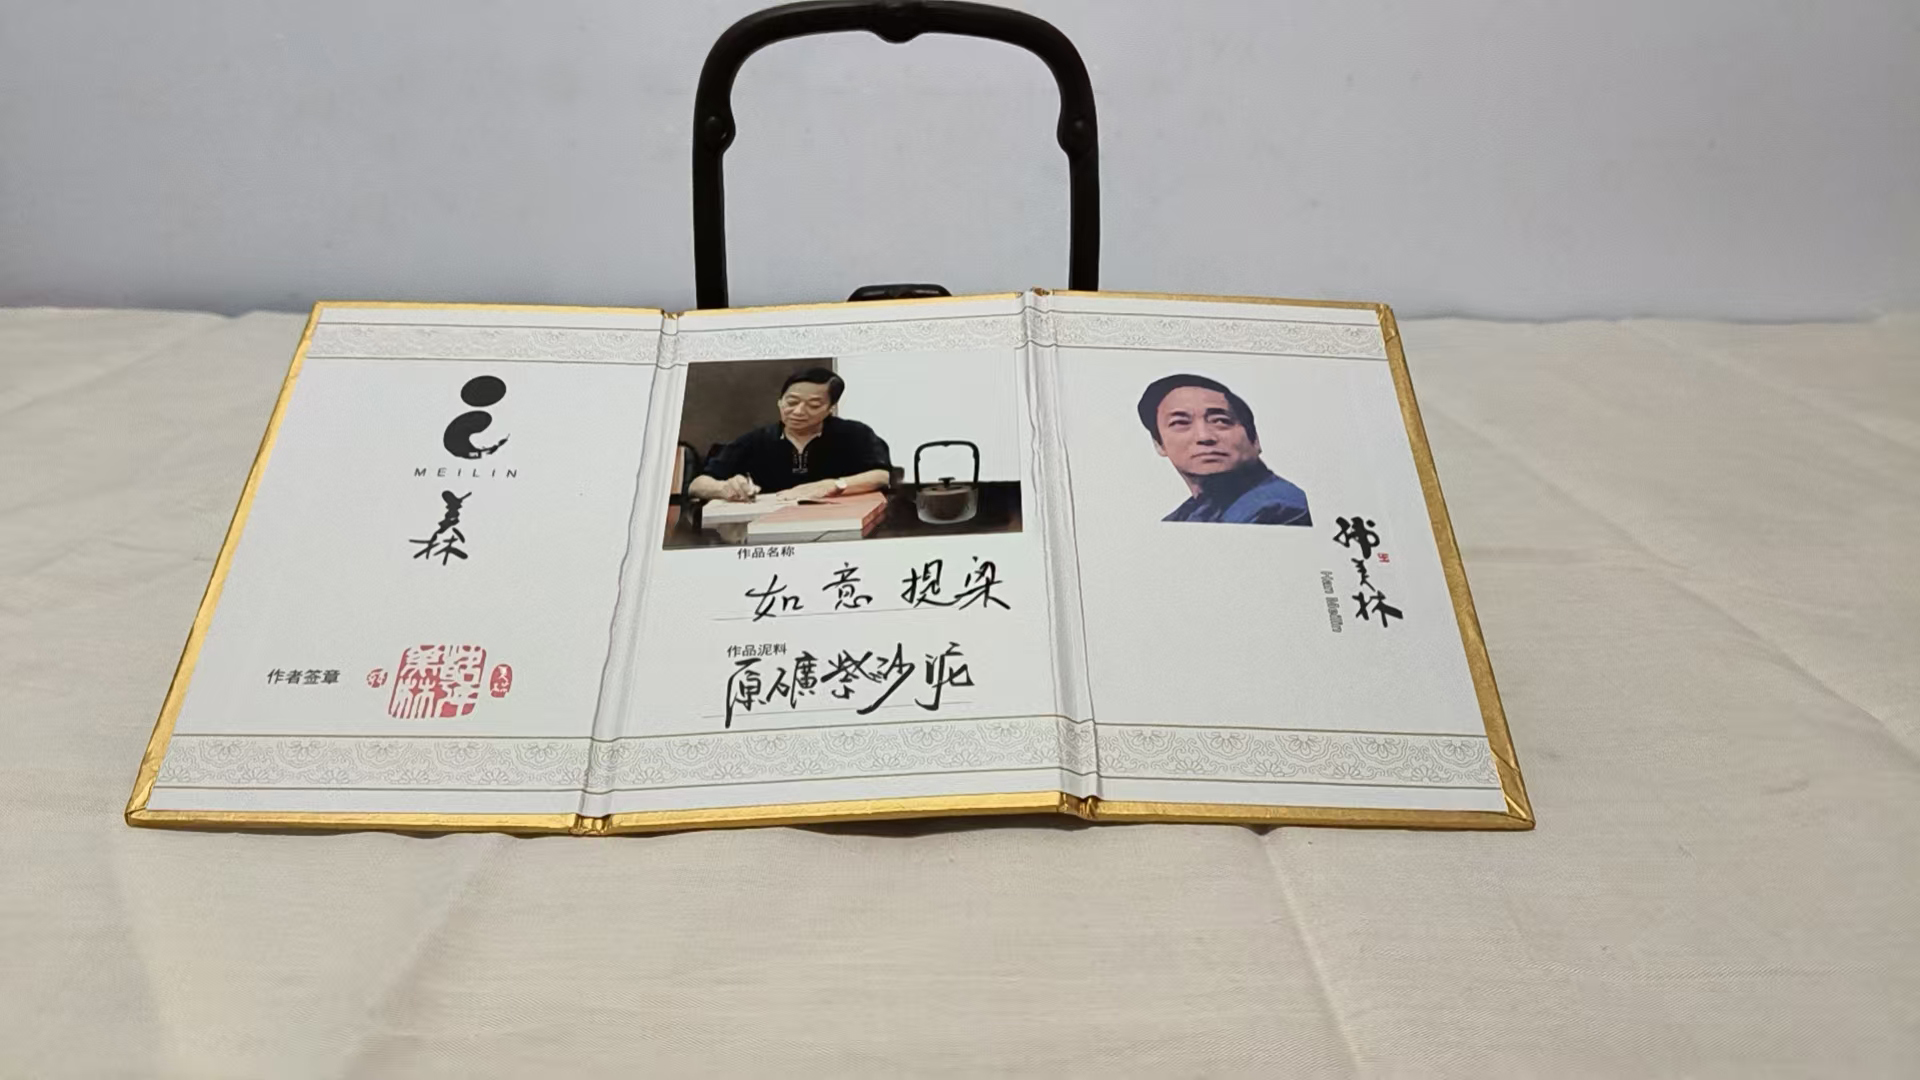 MEILIN
美林
作者签章
韩美林
作品名称
如意提梁
作品泥料
原礦紫沙泥
韩美林
Han Meilin